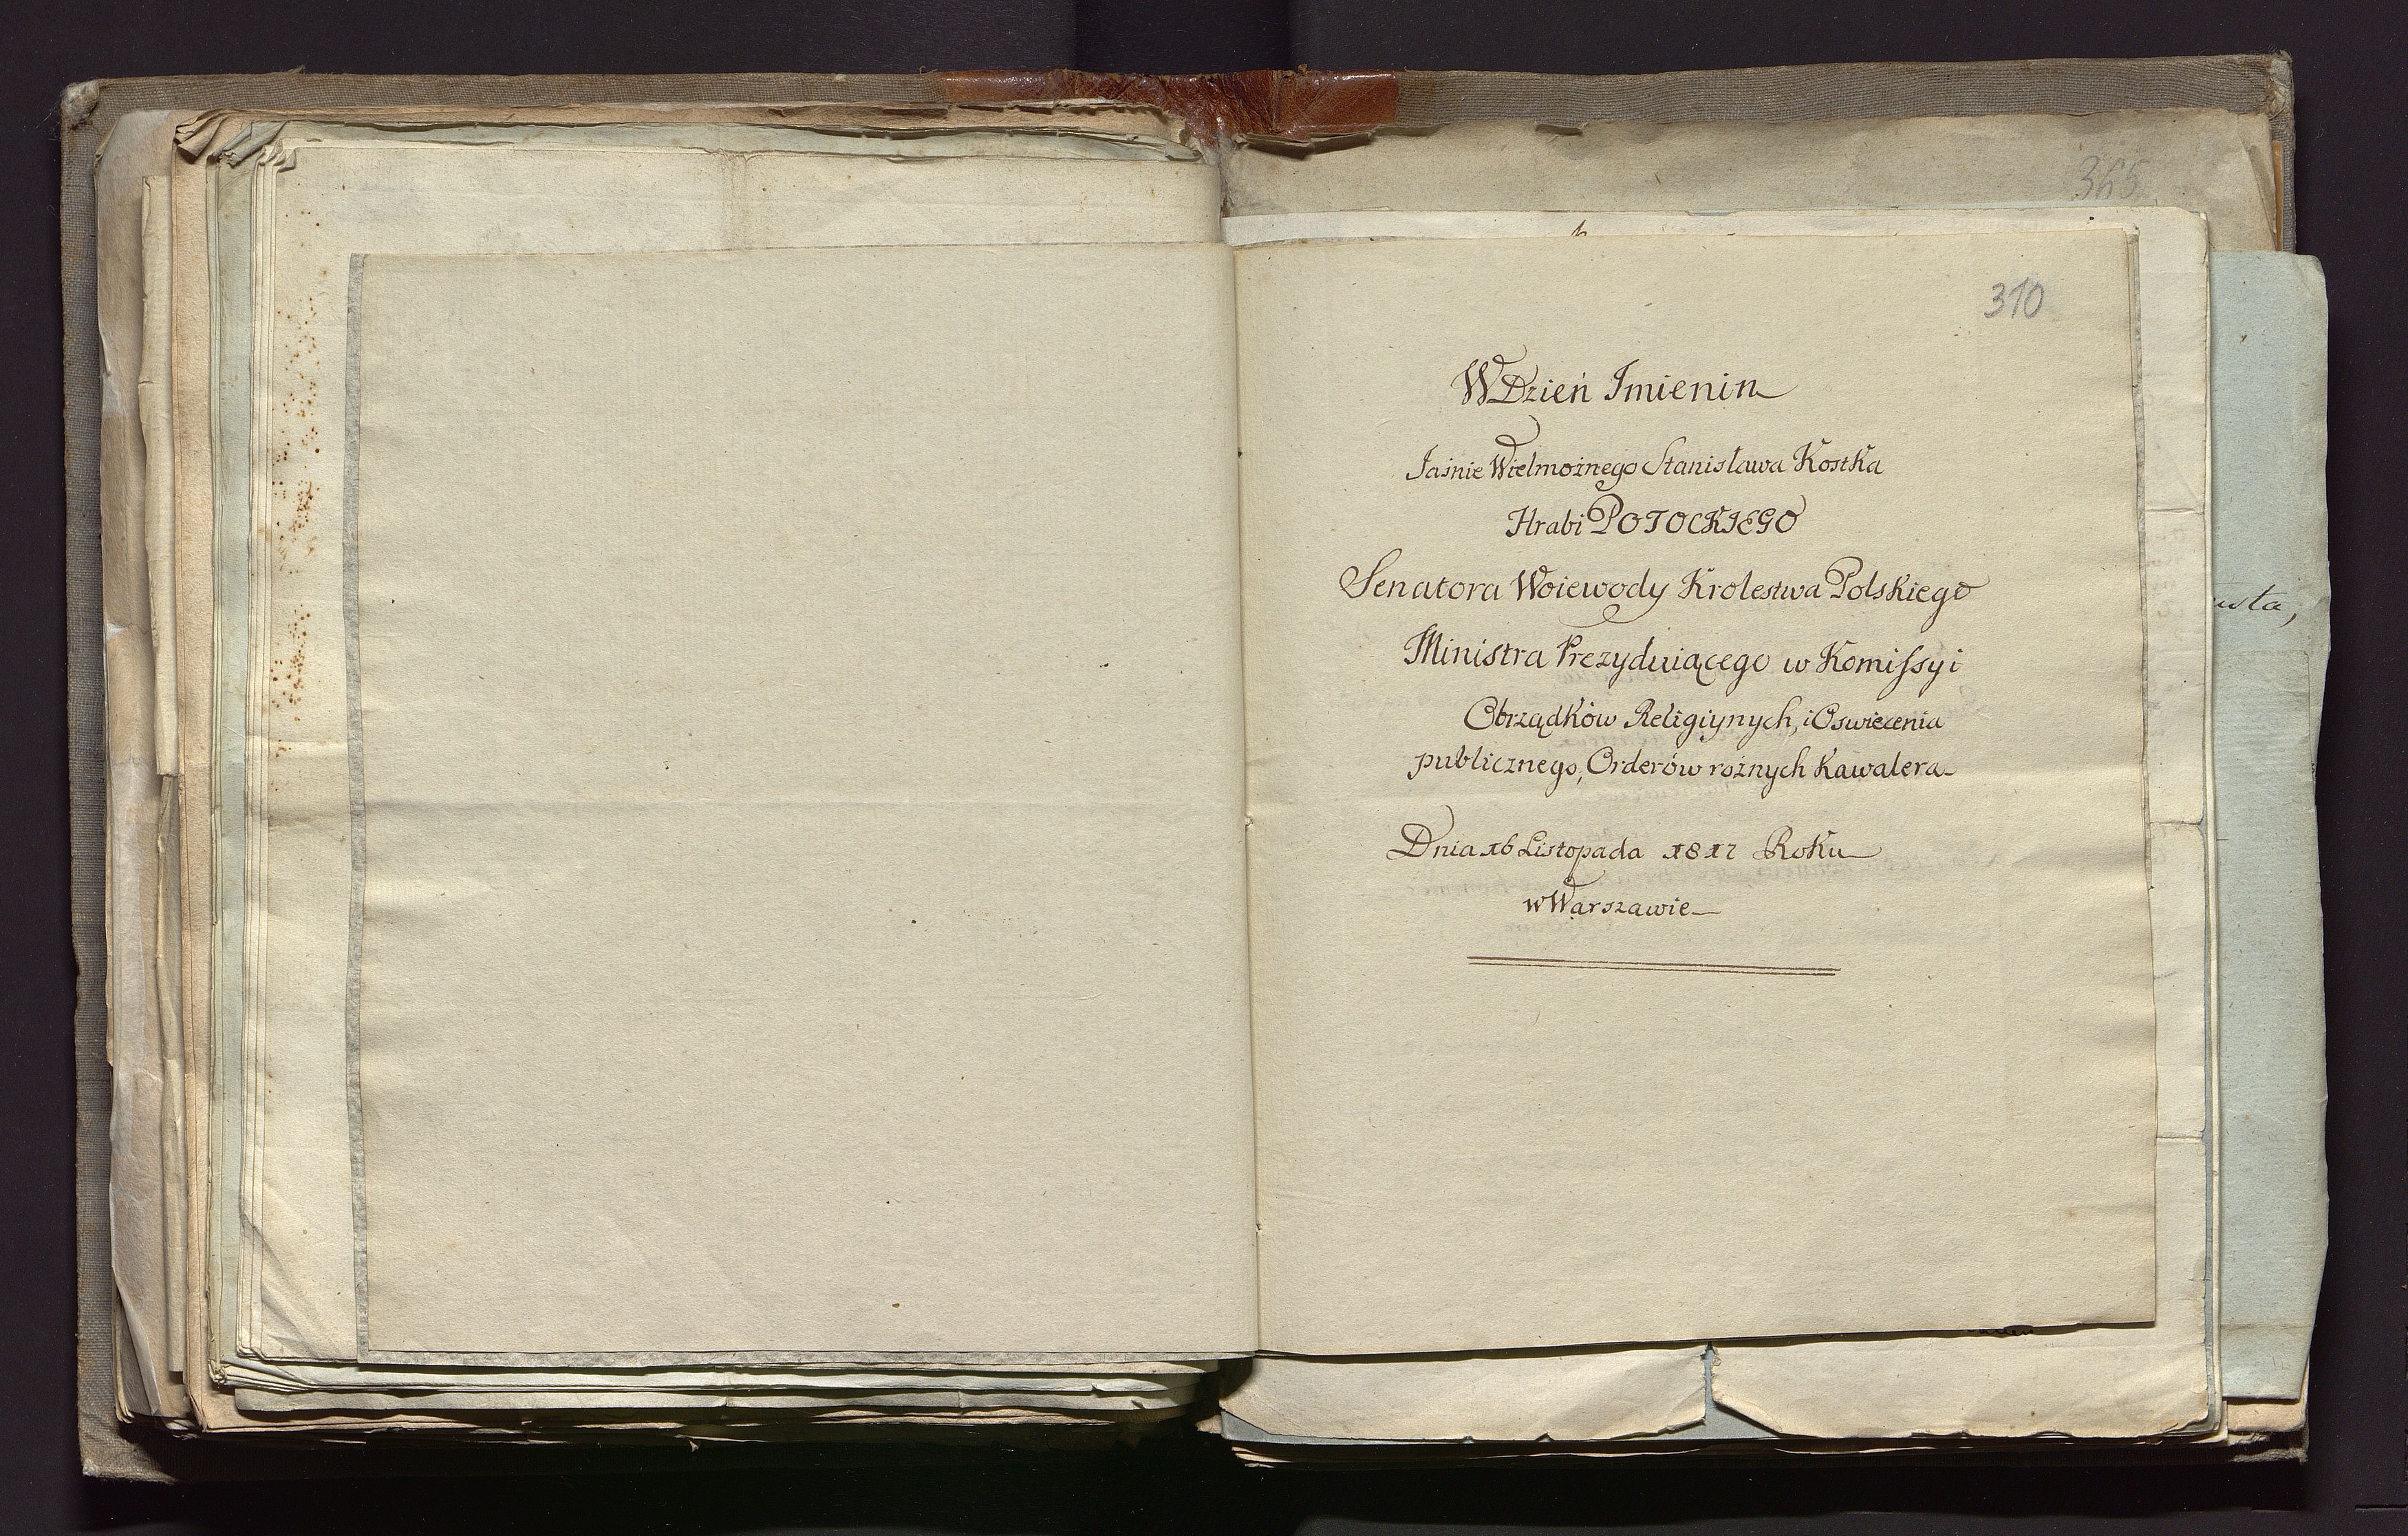 365
310
W Dzień Imienin
Jaśnie Wielmożnego Stanisława Kostka
Hrabi POTOCKIEGO
Senatora Woiewody Krolestwa Polskiego
Ministra Prezyduiącego w Komissyi
Obrządków Religiynych, i Oswiecenia
publicznego, Orderów rożnych Kawalera
Dnia 16 Listopada 1817 Roku
w Warszawie